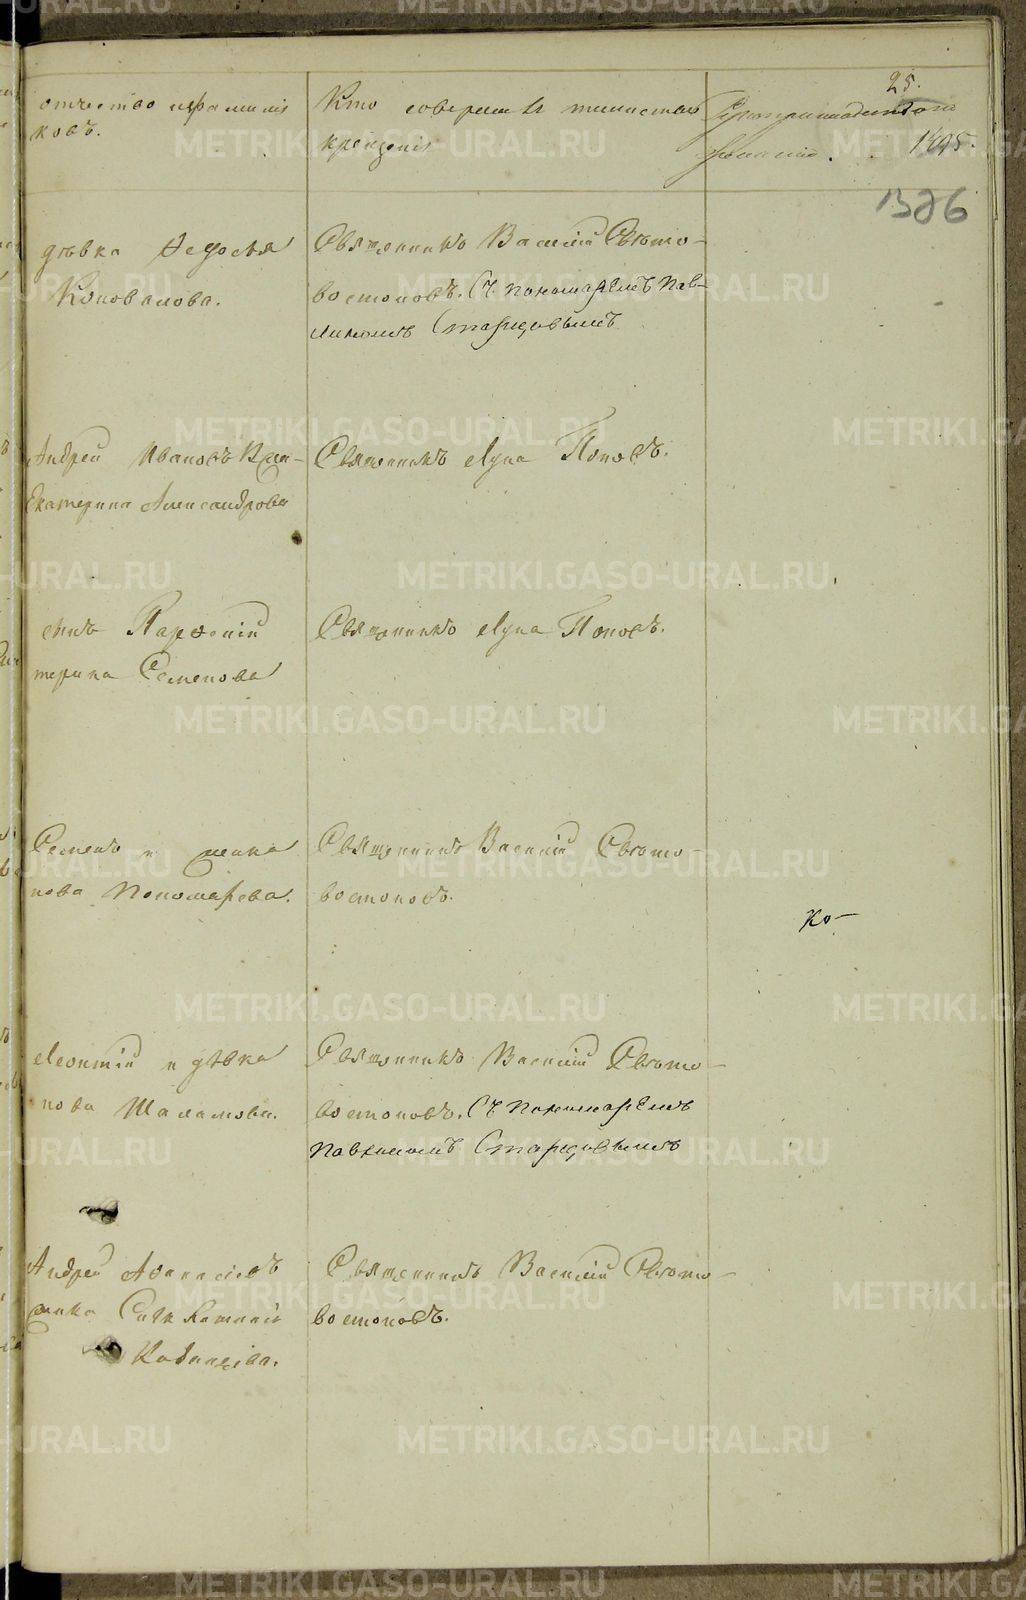 25.
отчество и фамилія
ковъ.
Кто совершалъ таинство
крещенія
1495.
1376
дѣвка Ѳедосья
Коновалова.
Священникъ Василій Свѣто-
востоковъ. Съ пономаремъ Пав-
линомъ Старцовымъ
Андрей Ивановъ
Екатерина Александрова
Священникъ Лука Поповъ.
Парѳеній
терина Семенова
Священникъ Лука Поповъ.
Семенъ и
нова Пономарева.
Священникъ Василій Свѣто-
востоковъ.
Ко-
Леонтій и дѣвка
нова Шаламова.
Священникъ Василій Свѣто-
востоковъ. Съ пономаремъ
Павлиномъ Старцовымъ
Андрей Аѳанасіевъ
Священникъ Василій Свѣто-
востоковъ.
METRIKI.GASO-URAL.RU